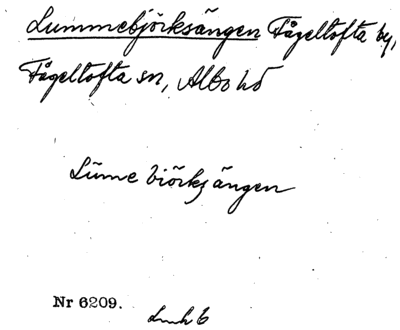 Lummebjörksängen Fågeltofta by,
Fågeltofta sn, Albo hd
Lüme biörks ängen
Nr 6209.